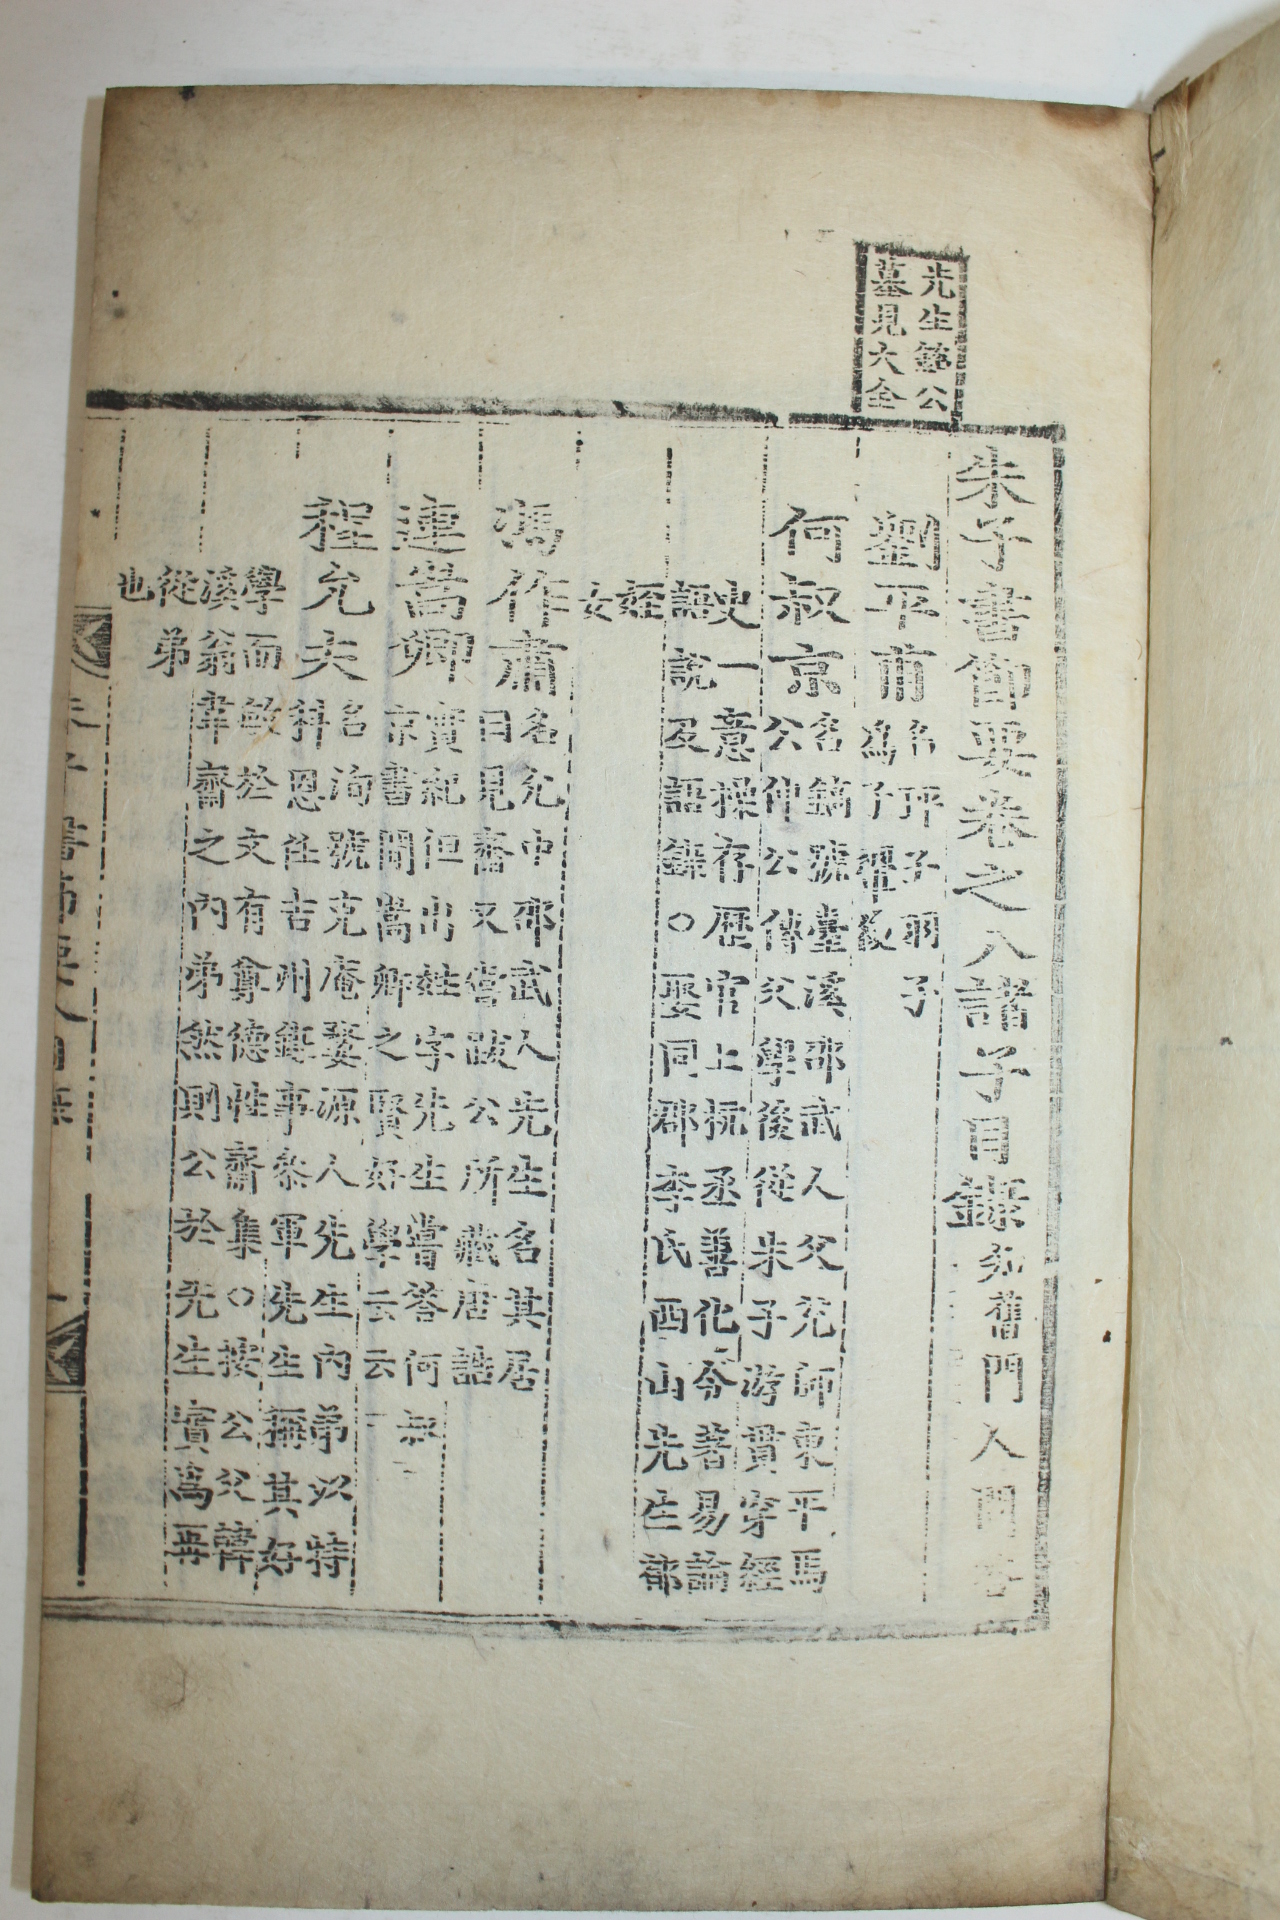 先生銘公
墓見大全
朱子書節要卷之八諸子目錄知舊門人問答
劉平甫名玶子羽子
爲子翬後
何叔京名鎬號臺溪邵武人父兌師東平馬
公伸公傳父學後從朱子游貫穿經
史一意操存歷官上杭丞善化令著易論
語說及語錄○娶同郡李氏西山先生郁
姪
女
馮作肅名允中邵武人先生名其居
曰見齋又嘗跋公所藏唐誥
連嵩卿實紀但出姓字先生嘗答何叔
京書聞嵩卿之賢好學云云
程允夫名洵號克庵婺源人先生內弟以特
科恩任吉州錄事參軍先生稱其好
學而敏於文有尊德性齋集○按公父韓
溪翁韋齋之內弟然則公於先生實爲再
從弟
也